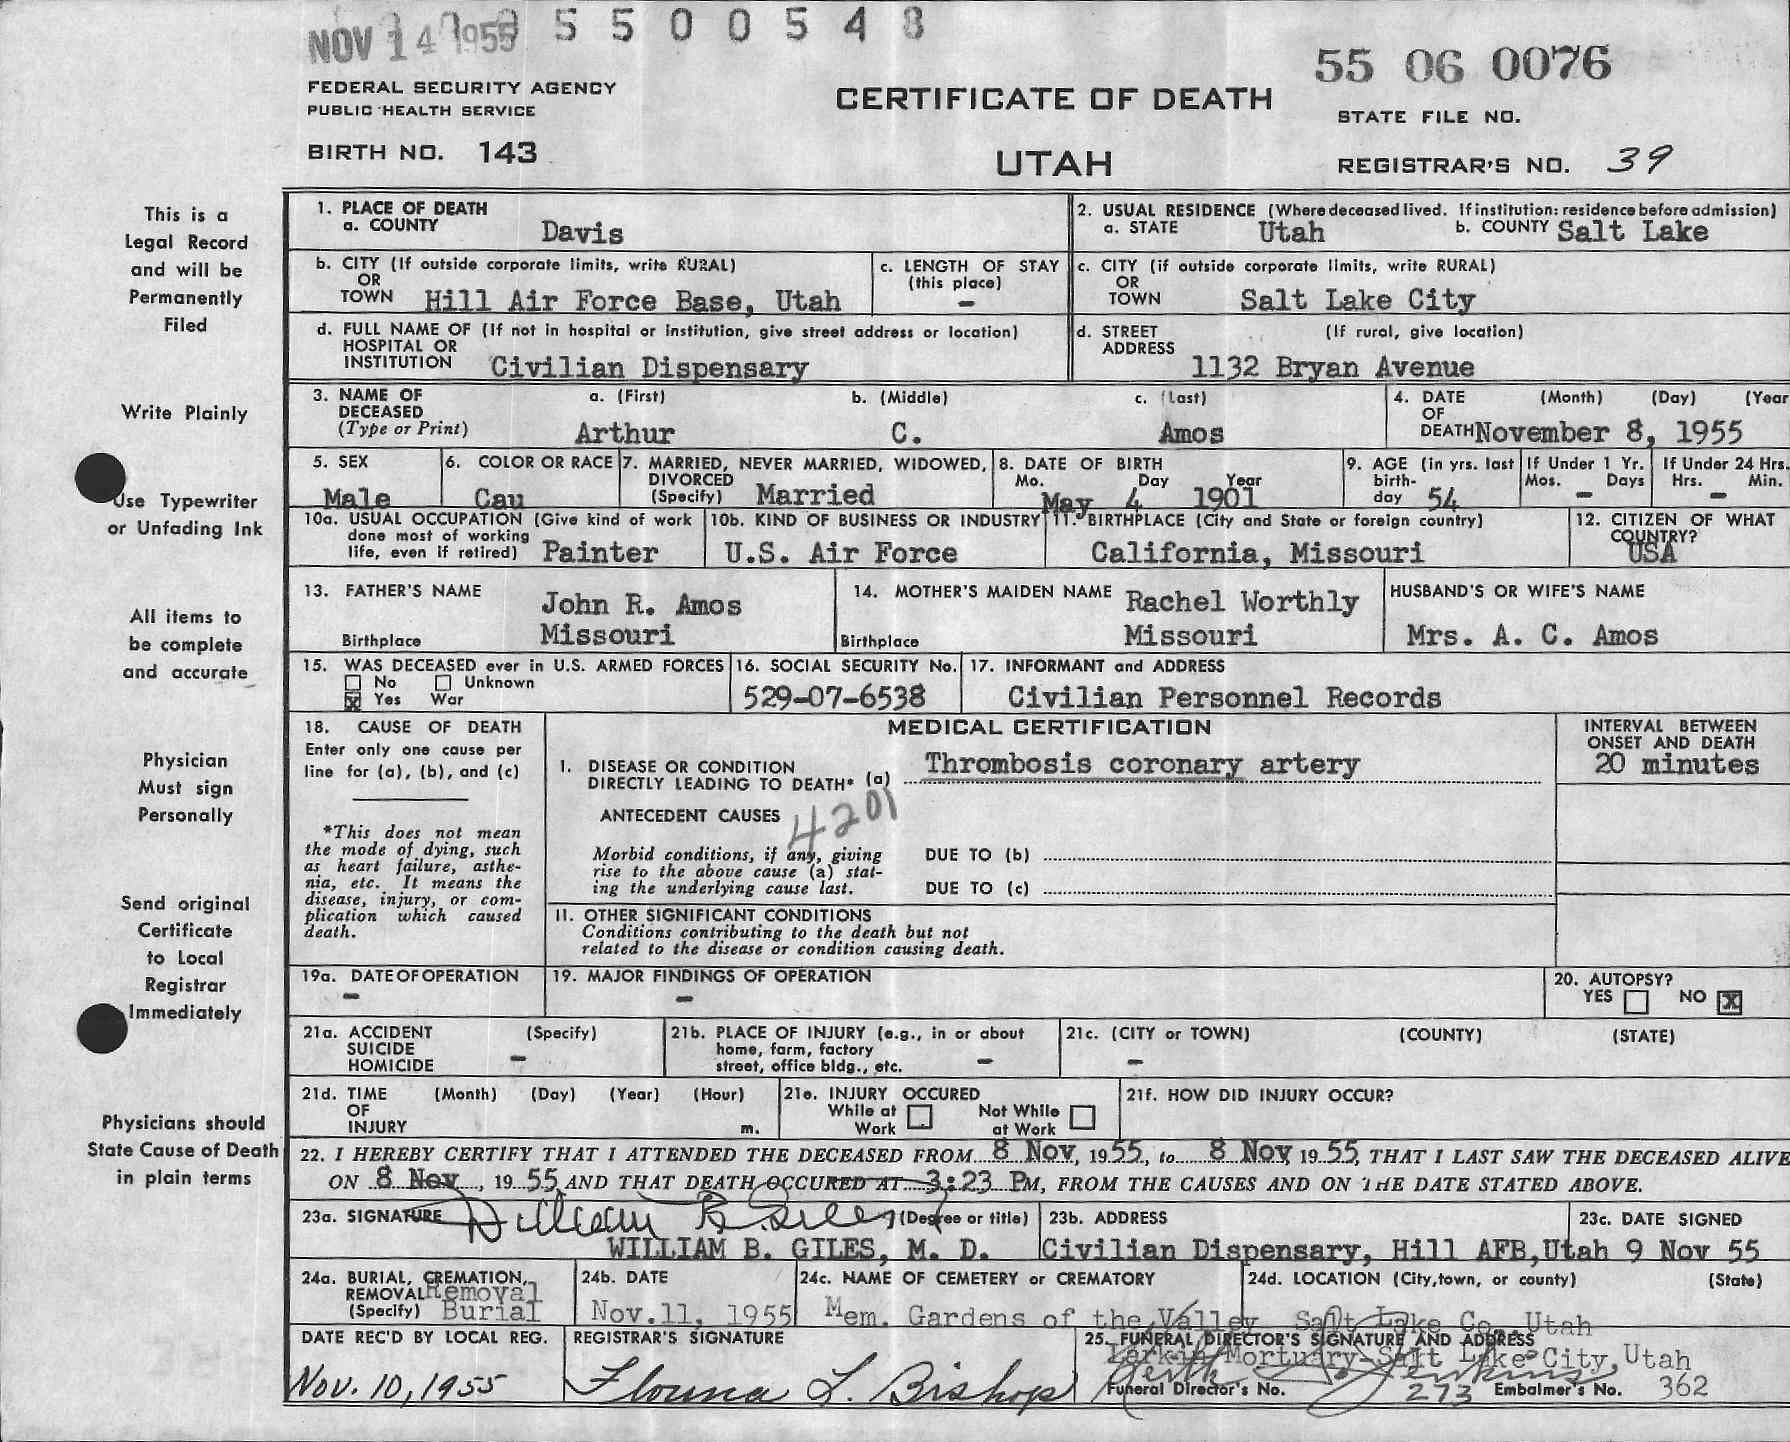 NOV 14 1955 5 5 0 0 5 4 8
55 06 0076
FEDERAL SECURITY AGENCY
PUBLIC HEALTH SERVICE
CERTIFICATE OF DEATH
STATE FILE NO.
BIRTH NO. 143
UTAH
REGISTRAR'S NO. 39
This is a
Legal Record
and will be
Permanently
Filed
Write Plainly
Use Typewriter
or Unfading Ink
All items to
be complete
and accurate
Physician
Must sign
Personally
Send original
Certificate
to Local
Registrar
Immediately
Physicians should
State Cause of Death
in plain terms
1. PLACE OF DEATH
a. COUNTY Davis
2. USUAL RESIDENCE (Where deceased lived. If institution: residence before admission)
a. STATE Utah b. COUNTY Salt Lake
b. CITY (If outside corporate limits, write RURAL)
OR
TOWN Hill Air Force Base, Utah
c. LENGTH OF STAY
(this place)
-
c. CITY (if outside corporate limits, write RURAL)
OR
TOWN Salt Lake City
d. FULL NAME OF (If not in hospital or institution, give street address or location)
HOSPITAL OR
INSTITUTION Civilian Dispensary
d. STREET (If rural, give location)
ADDRESS 1132 Bryan Avenue
3. NAME OF a. (First) b. (Middle) c. (Last)
DECEASED
(Type or Print) Arthur C. Amos
4. DATE (Month) (Day) (Year
OF
DEATH November 8, 1955
5. SEX
Male
6. COLOR OR RACE
Cau
7. MARRIED, NEVER MARRIED, WIDOWED,
DIVORCED
(Specify) Married
8. DATE OF BIRTH
Mo. Day Year
May 4 1901
9. AGE (in yrs. last
birth-
day 54
If Under 1 Yr.
Mos. - Days
If Under 24 Hrs.
Hrs. - Min.
10a. USUAL OCCUPATION (Give kind of work
done most of working
life, even if retired) Painter
10b. KIND OF BUSINESS OR INDUSTRY
U.S. Air Force
11. BIRTHPLACE (City and State or foreign country)
California, Missouri
12. CITIZEN OF WHAT
COUNTRY?
USA
13. FATHER'S NAME John R. Amos
Birthplace Missouri
14. MOTHER'S MAIDEN NAME Rachel Worthly
Birthplace Missouri
HUSBAND'S OR WIFE'S NAME
Mrs. A. C. Amos
15. WAS DECEASED ever in U.S. ARMED FORCES
No Unknown
X Yes War
16. SOCIAL SECURITY No.
529-07-6538
17. INFORMANT and ADDRESS
Civilian Personnel Records
18. CAUSE OF DEATH
Enter only one cause per
line for (a), (b), and (c)
*This does not mean
the mode of dying, such
as heart failure, asthe-
nia, etc. It means the
disease, injury, or com-
plication which caused
death.
MEDICAL CERTIFICATION
I. DISEASE OR CONDITION
DIRECTLY LEADING TO DEATH* (a) Thrombosis coronary artery
ANTECEDENT CAUSES 4201
Morbid conditions, if any, giving
rise to the above cause (a) stat-
ing the underlying cause last.
DUE TO (b)
DUE TO (c)
II. OTHER SIGNIFICANT CONDITIONS
Conditions contributing to the death but not
related to the disease or condition causing death.
INTERVAL BETWEEN
ONSET AND DEATH
20 minutes
19a. DATE OF OPERATION
-
19. MAJOR FINDINGS OF OPERATION
-
20. AUTOPSY?
YES NO X
21a. ACCIDENT (Specify)
SUICIDE
HOMICIDE -
21b. PLACE OF INJURY (e.g., in or about
home, farm, factory
street, office bldg., etc. -
21c. (CITY or TOWN) (COUNTY) (STATE)
-
21d. TIME (Month) (Day) (Year) (Hour)
OF
INJURY m.
21e. INJURY OCCURED
While at Not While
Work at Work
21f. HOW DID INJURY OCCUR?
22. I HEREBY CERTIFY THAT I ATTENDED THE DECEASED FROM 8 Nov, 1955, to 8 Nov 1955, THAT I LAST SAW THE DECEASED ALIVE
ON 8 Nov, 1955 AND THAT DEATH OCCURED AT 3:23 PM, FROM THE CAUSES AND ON THE DATE STATED ABOVE.
23a. SIGNATURE William B Giles (Degree or title)
WILLIAM B. GILES, M. D.
23b. ADDRESS
Civilian Dispensary, Hill AFB, Utah
23c. DATE SIGNED
9 Nov 55
24a. BURIAL, CREMATION,
REMOVAL Removal
(Specify) Burial
24b. DATE
Nov.11, 1955
24c. NAME OF CEMETERY or CREMATORY
Mem. Gardens of the Valley
24d. LOCATION (City, town, or county) (State)
Salt Lake Co. Utah
DATE REC'D BY LOCAL REG.
Nov. 10, 1955
REGISTRAR'S SIGNATURE
L. Bishop
25. FUNERAL DIRECTOR'S SIGNATURE AND ADDRESS
Larkin Mortuary-Salt Lake City, Utah
Jenkins
Funeral Director's No. 273 Embalmer's No. 362